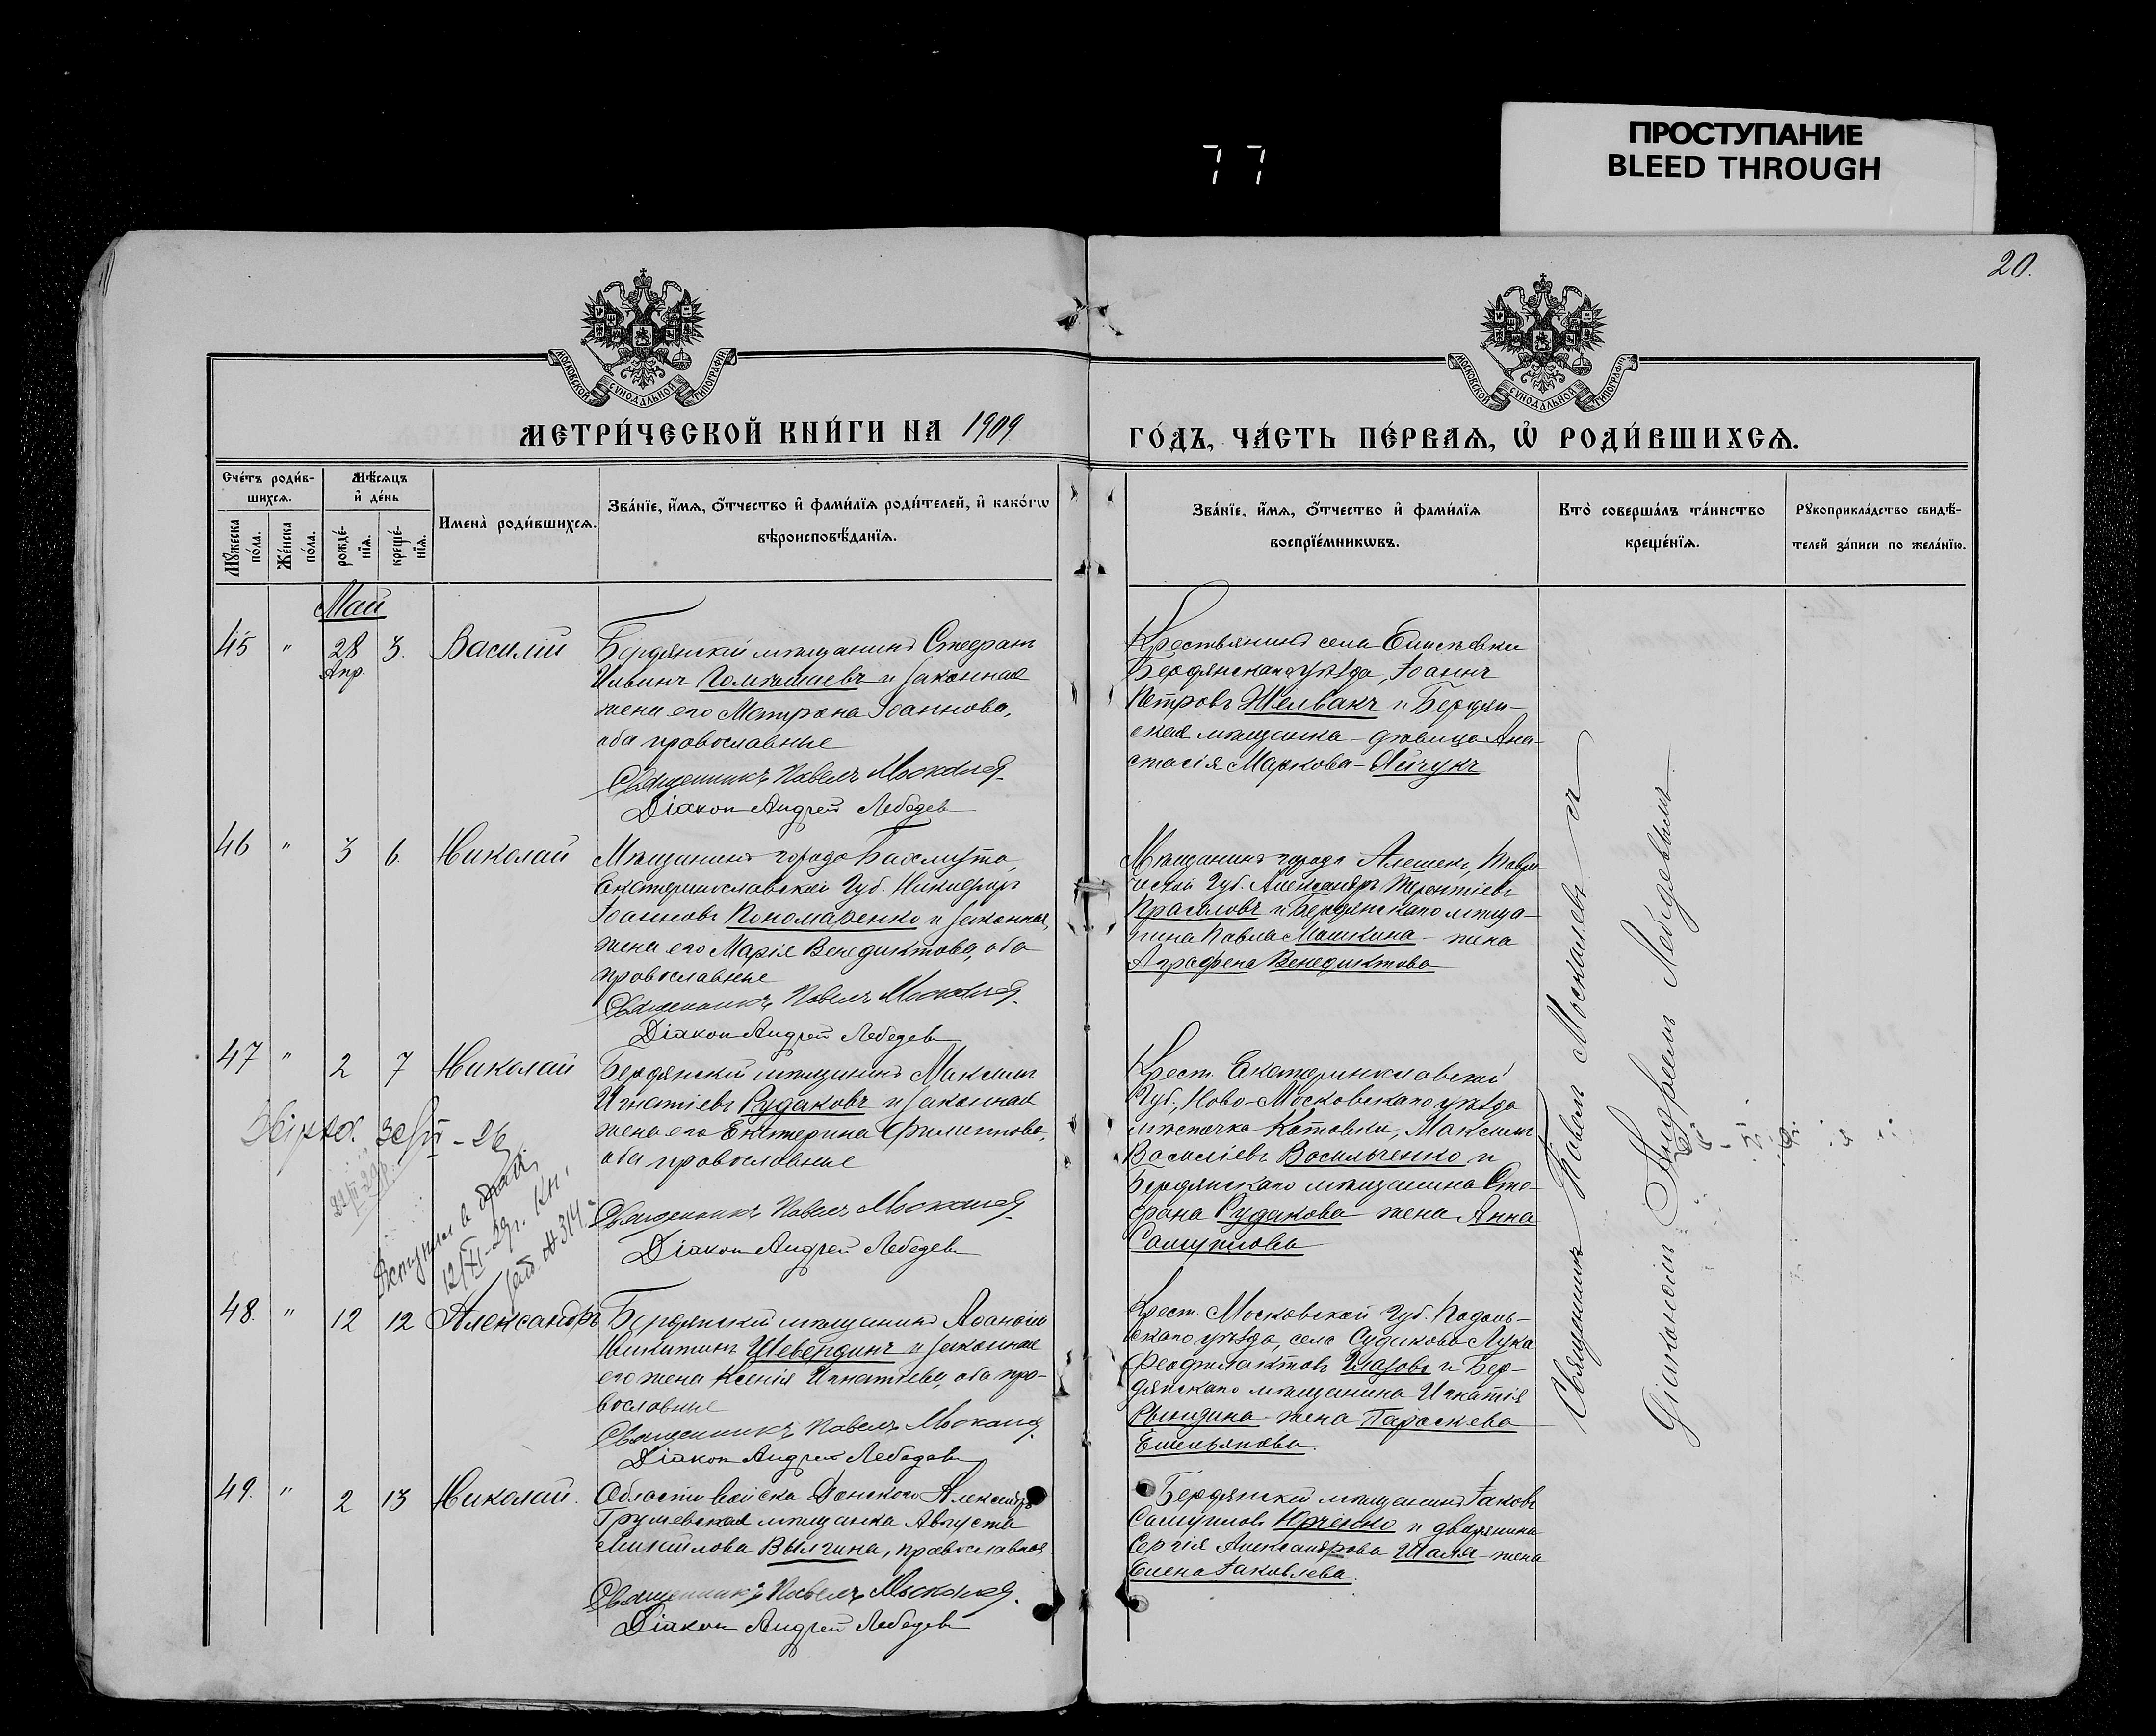 ПРОСТУПАНИЕ
BLEED THROUGH
77
20.
МОСКОВСКОЙ СУНОДАЛЬНОЙ ТИПОГРАФІИ
МОСКОВСКОЙ СУНОДАЛЬНОЙ ТИПОГРАФІИ
МЕТРИ́ЧЕСКОЙ КНИ́ГИ НА 1909
ГО́ДЪ, ЧА́СТЬ ПЕ́РВАѦ, Ѡ҆ РОДИ́ВШИХСѦ.
Сче́тъ роди́в-
шихсѧ.
Мꙋжеска по́ла.
Же́нска по́ла.
Мѣ́сѧцъ
и҆ де́нь
рожде́-
нїѧ.
креще́-
нїѧ.
Имена̀ роди́вшихсѧ.
Зва́нїе, и҆́мѧ, ѻ҆́тчество и҆ фами́лїѧ роди́телей, и҆ како́гѡ
вѣроисповѣ́данїѧ.
Зва́нїе, и҆́мѧ, ѻ҆́тчество и҆ фами́лїѧ
воспрїе́мникѡвъ.
Кто̀ соверша́лъ та́инство
креще́нїѧ.
Рꙋкоприкла́дство свидѣ́-
телей за́писи по жела́нїю.
Май
45 " 28 Апр. 3. Василій
Бердянскій мѣщанинъ Стефанъ
Ильинъ и законная
жена его Матрона Іоаннова,
оба православные
Священникъ Павелъ Москалев
Діакон Андрей Лебедев
Крестьянинъ села
Бердянскаго уѣзда, Іоаннъ
Петровъ Желвакъ и Бердян-
ская мѣщанка - дѣвица Ана-
стасія Маркова -
46 " 3 6. Николай
Мѣщанинъ города Бахмута,
Екатеринославской Губ. Никифоръ
Іоанновъ Пономаренко и законная
жена его Марія Венедиктова, оба
православные
Священникъ Павелъ Москалев
Діакон Андрей Лебедев
Мѣщанинъ города Алешекъ, Таври-
ческой Губ. Александръ Терентіевъ
и Бердянскаго мѣща-
нина Павла Машкина - жена
Аграфена Венедиктова
47 " 2 7 Николай
Бердянскій мѣщанинъ Максимъ
Игнатіевъ Рудаковъ и законная
жена его Екатерина Филиппова,
оба православные
Священникъ Павелъ Москалев
Діакон Андрей Лебедев
Вступил в брак
12/XI-29г. Кн.
зап № 314
Крест. Екатеринославской
Губ., Ново-Московскаго уѣзда
мѣстечка Котовки, Максимъ
Василіевъ Васильченко и
Бердянскаго мѣщанина Сте-
фана Рудакова жена Анна
Самуилова
48. " 12 12 Александръ
Бердянскій мѣщанинъ Аѳанасій
Никитинъ Шевердинъ и законная
его жена Ксенія Игнатіева, оба пра-
вославные
Священникъ Павелъ Москалев
Діакон Андрей Лебедев
Крест. Московской Губ. Подоль-
скаго уѣзда, села Судакова Лука
Феофилактовъ Глазовъ и Бер-
дянскаго мѣщанина Игнатія
Рындина жена Параскева
Емельянова.
49. " 2 13 Николай.
Области Войска Донскаго Александръ
Грушевская мѣщанка Августа
Михайлова Вялгина, православная
Священникъ Павелъ Москалев.
Діакон Андрей Лебедев
Бердянскій мѣщанинъ Іаковъ
Самуиловъ Юрченко и дворянина
Сергія Александрова Шаля - жена
Елена Іаковлева.
Священникъ Павелъ Москалевъ съ
Діакономъ Андреемъ Лебедевымъ